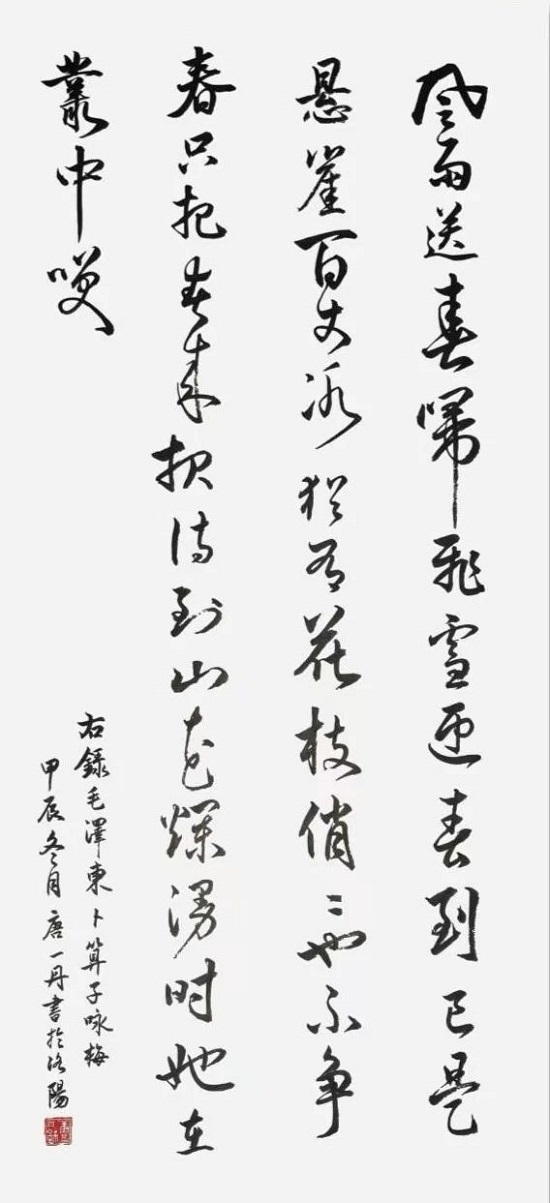 風雨送春歸飛雪迎春到已是
懸崖百丈冰猶有花枝俏〻也不争
春只把春來報待到山花爛漫時她在
叢中咲
右錄毛澤東卜算子咏梅
甲辰冬月唐一丹書於洛陽